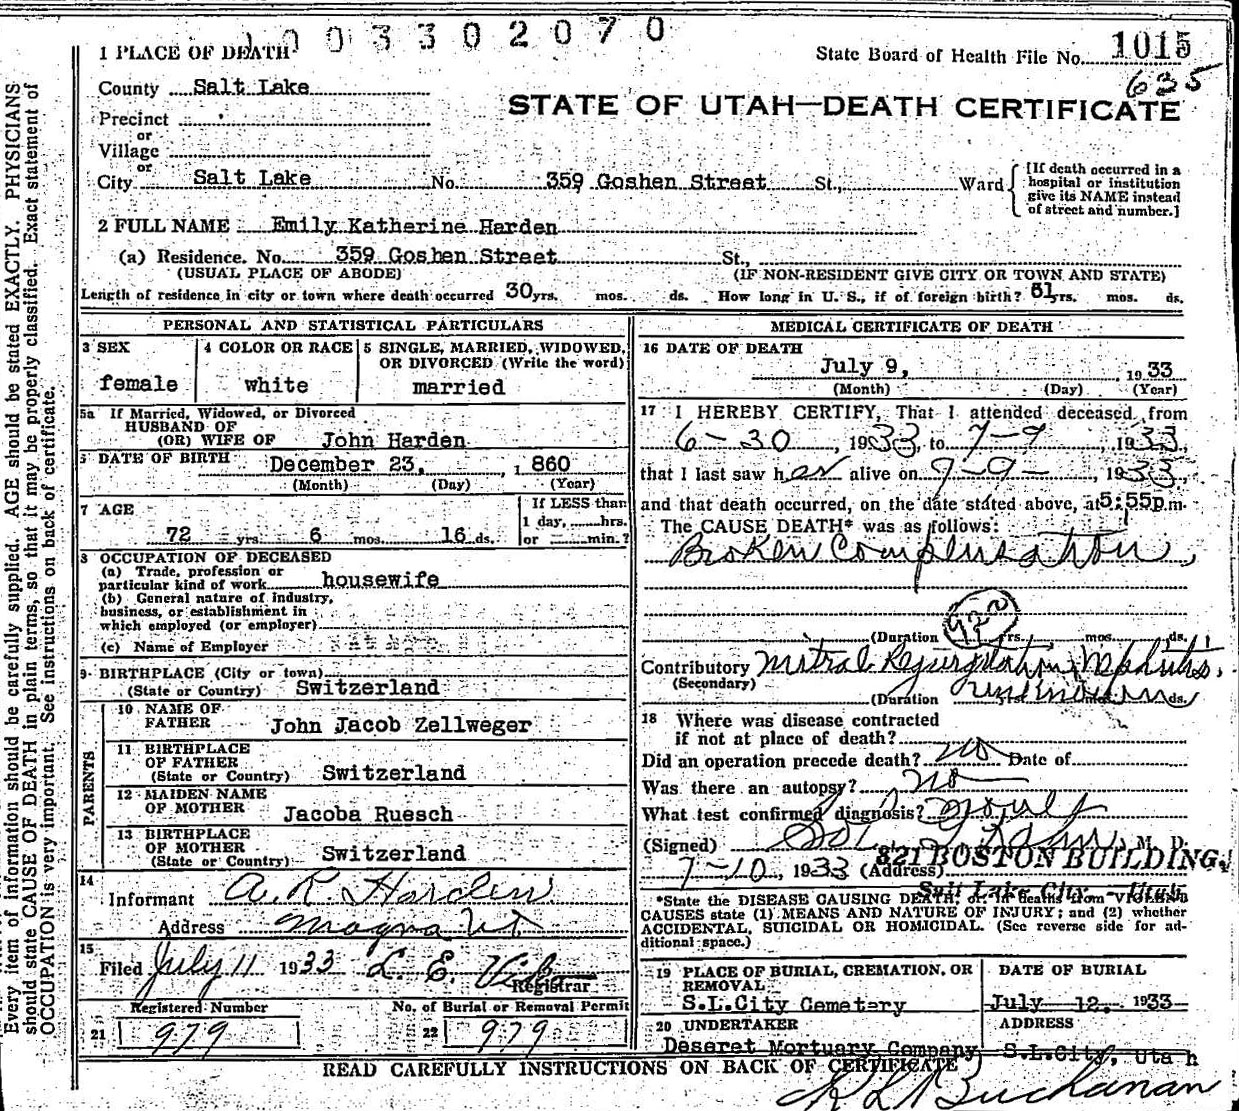 0 0 3 3 0 2 0 7 0
1 PLACE OF DEATH
State Board of Health File No. 1015
635
County Salt Lake
STATE OF UTAH—DEATH CERTIFICATE
Precinct
or
Village
or
City Salt Lake No. 359 Goshen Street St., Ward
[If death occurred in a
hospital or institution
give its NAME instead
of street and number.]
2 FULL NAME Emily Katherine Harden
(a) Residence. No. 359 Goshen Street St.,
(USUAL PLACE OF ABODE) (IF NON-RESIDENT GIVE CITY OR TOWN AND STATE)
Length of residence in city or town where death occurred 30 yrs. mos. ds. How long in U. S., if of foreign birth? 61 yrs. mos. ds.
PERSONAL AND STATISTICAL PARTICULARS
3 SEX
female
4 COLOR OR RACE
white
5 SINGLE, MARRIED, WIDOWED,
OR DIVORCED (Write the word)
married
5a If Married, Widowed, or Divorced
HUSBAND OF
(OR) WIFE OF John Harden
DATE OF BIRTH December 23, 1860
(Month) (Day) (Year)
7 AGE
72 yrs. 6 mos. 16 ds.
If LESS than
1 day, hrs.
or min.?
8 OCCUPATION OF DECEASED
(a) Trade, profession or
particular kind of work housewife
(b) General nature of industry,
business, or establishment in
which employed (or employer)
(c) Name of Employer
9 BIRTHPLACE (City or town)
(State or Country) Switzerland
PARENTS
10 NAME OF
FATHER John Jacob Zellweger
11 BIRTHPLACE
OF FATHER
(State or Country) Switzerland
12 MAIDEN NAME
OF MOTHER Jacoba Ruesch
13 BIRTHPLACE
OF MOTHER
(State or Country) Switzerland
14
Informant A. R. Harden
Address Magna Ut.
15
Filed July 11 1933 L. E.
Registrar
Registered Number
21 979
No. of Burial or Removal Permit
22 979
MEDICAL CERTIFICATE OF DEATH
16 DATE OF DEATH
July 9, 1933
(Month) (Day) (Year)
17 I HEREBY CERTIFY, That I attended deceased from
6-30, 1933, to 7-9, 1933,
that I last saw her alive on 7-9-, 1933,
and that death occurred, on the date stated above, at 5:55p.m.
The CAUSE DEATH* was as follows:
Broken Compensation,
(Duration yrs. mos. ds.
Contributory Mitral Regurgitation, Nephritis.
(Secondary)
(Duration yrs. mos. ds.
18 Where was disease contracted
if not at place of death?
Did an operation precede death? no Date of
Was there an autopsy? no
What test confirmed diagnosis?
(Signed) M. D.
7-10, 1933 (Address) 821 BOSTON BUILDING,
Salt Lake City - Utah
*State the DISEASE CAUSING DEATH, or, in deaths from VIOLENT
CAUSES state (1) MEANS AND NATURE OF INJURY; and (2) whether
ACCIDENTAL, SUICIDAL OR HOMICIDAL. (See reverse side for ad-
ditional space.)
19 PLACE OF BURIAL, CREMATION, OR
REMOVAL
S.L.City Cemetery
DATE OF BURIAL
July 12, 1933
20 UNDERTAKER
Deseret Mortuary Company
ADDRESS
S.L.City, Utah
READ CAREFULLY INSTRUCTIONS ON BACK OF CERTIFICATE
Buchanan
Every item of information should be carefully supplied. AGE should be stated EXACTLY. PHYSICIANS
should state CAUSE OF DEATH in plain terms, so that it may be properly classified. Exact statement of
OCCUPATION is very important. See instructions on back of certificate.